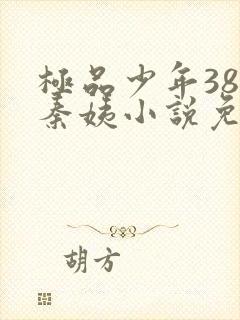 極品少年38
秦姨小說免
胡方